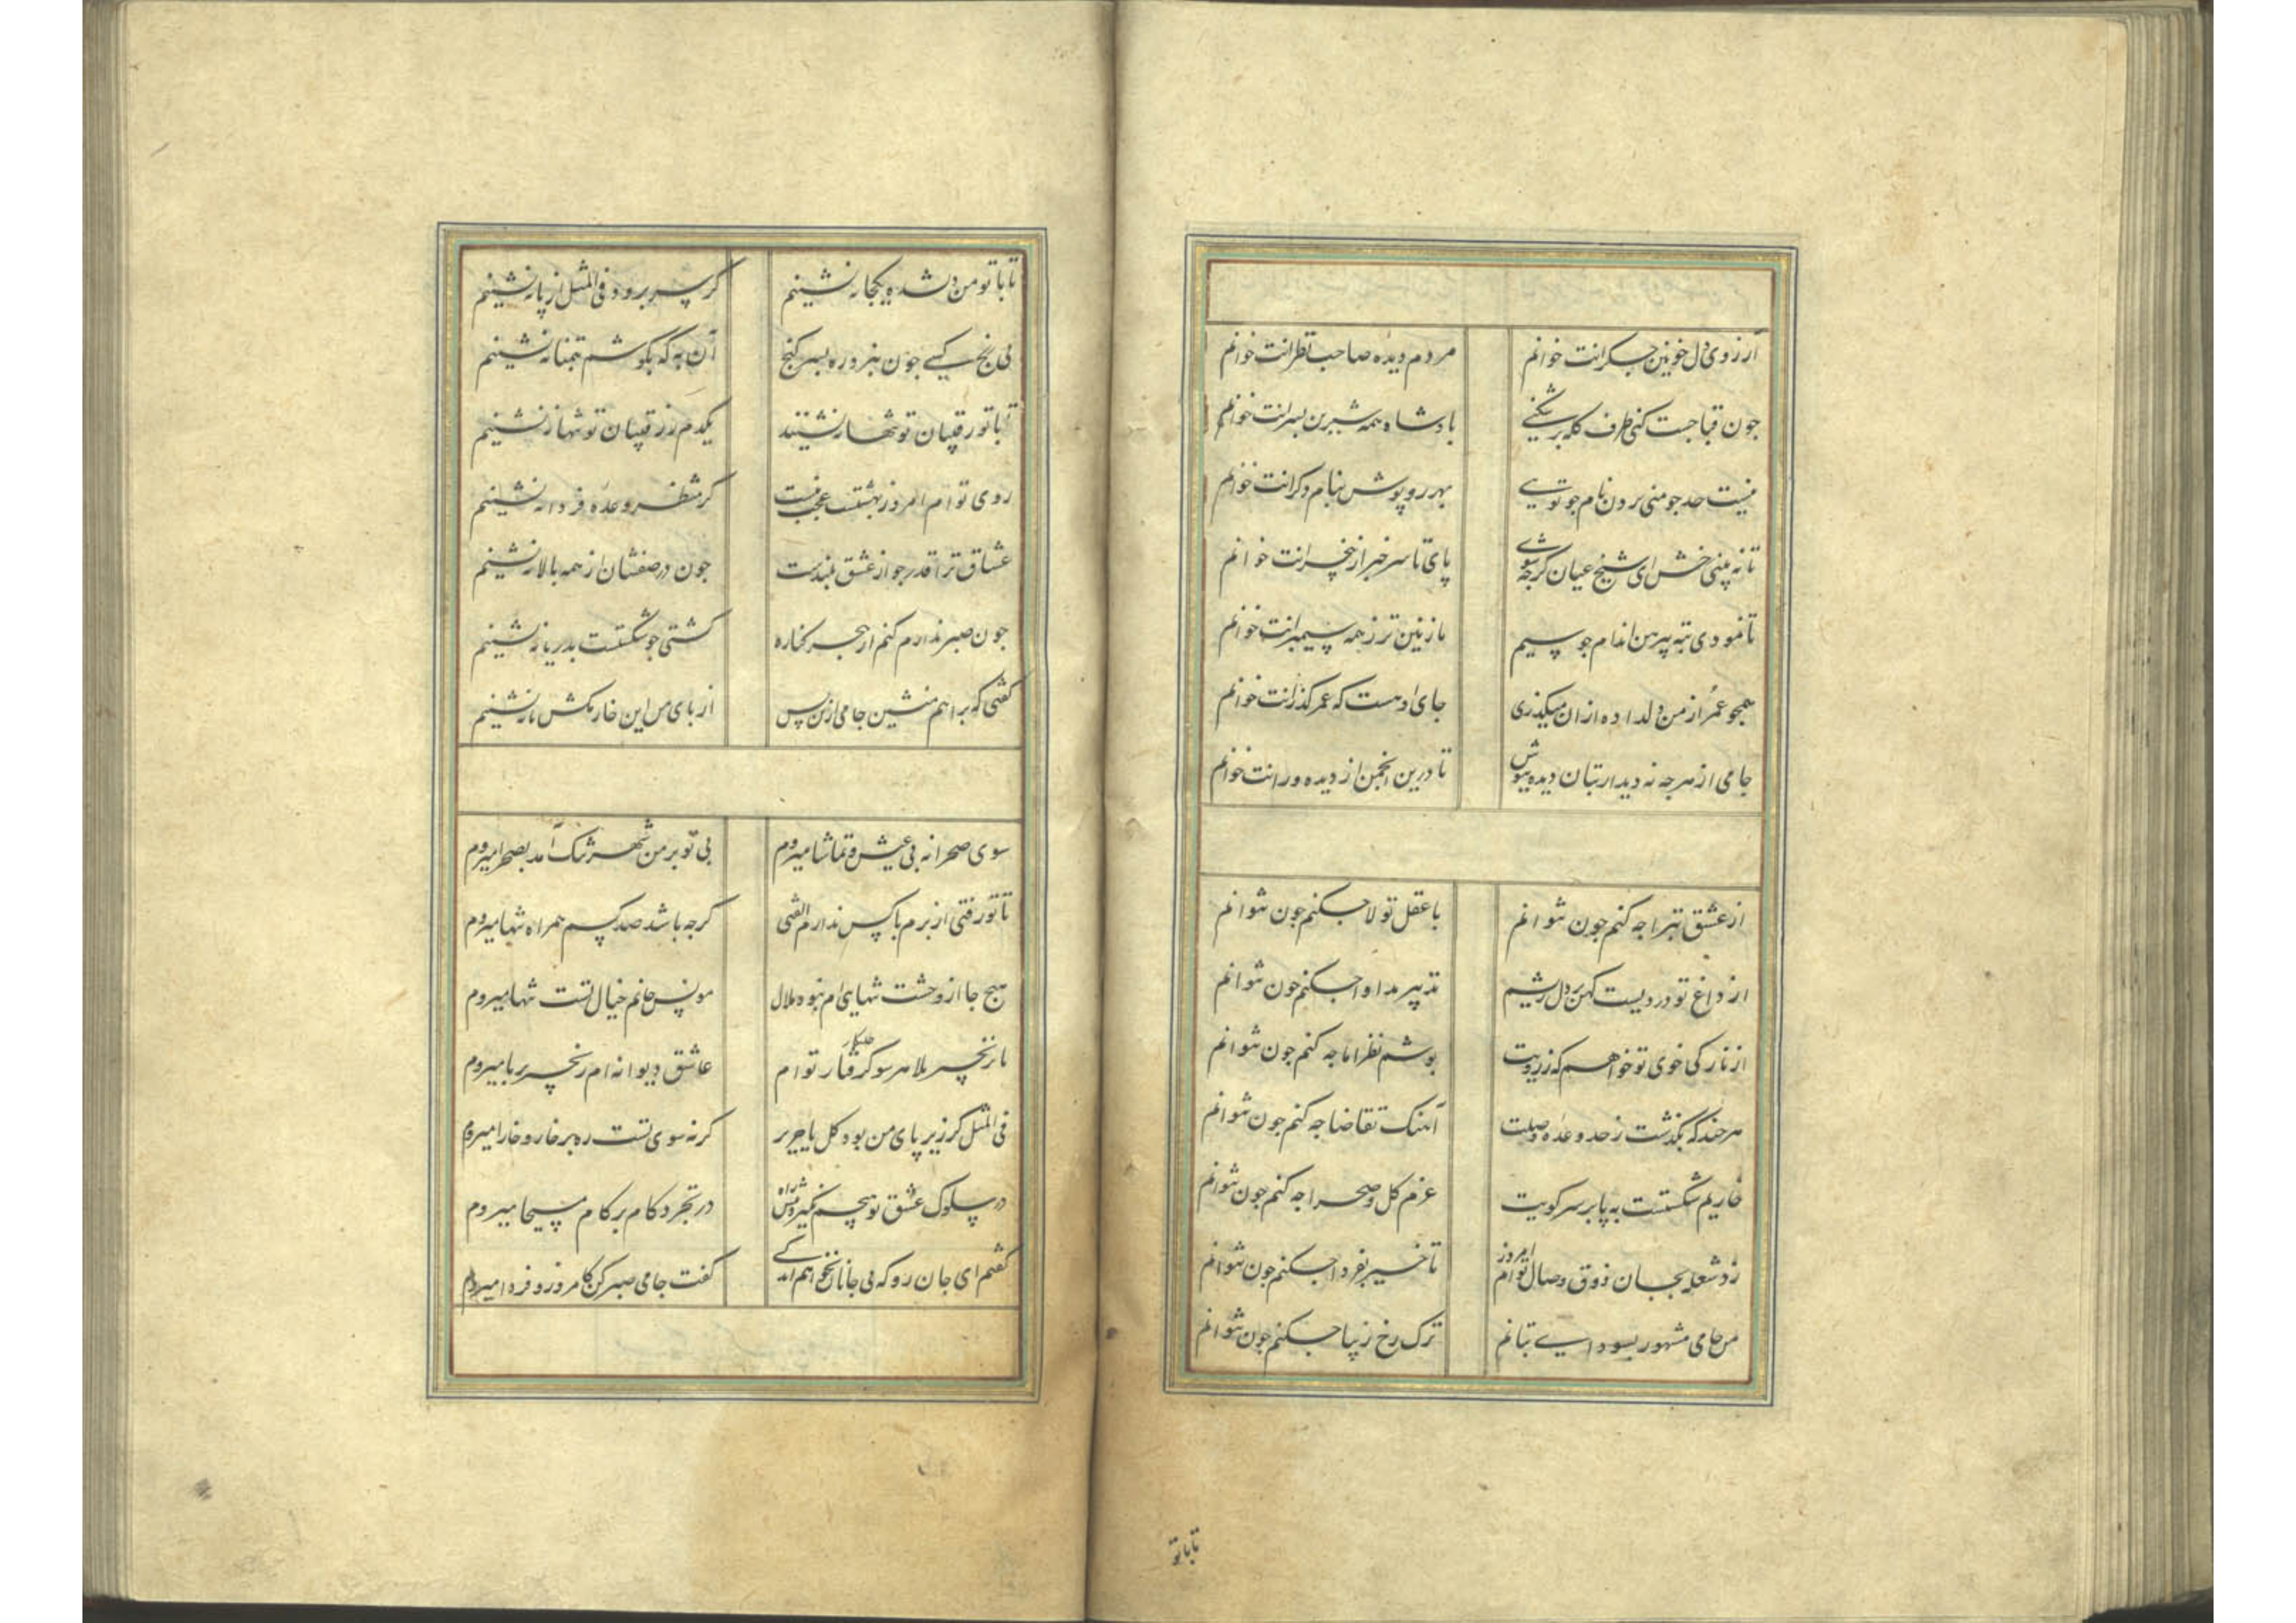 آرزوی دل خونین جگرانت خوانم مردم دیده صاحب نظرانت خوانم
جون قبا جست کنی طرف کله برشکنی پادشاه همه شیرین پسرانت خوانم
نیست حد جو منی بردن نام جو تویی بهر روپوش بنام دکرانت خوانم
تا نه بینی رخش ای شیخ عیان کرجه شوی پای تا سر خبر از بیخبرانت خوانم
تا نمودی ته پیرهن اندام جو سیم نازنین تر ز همه سیمبرانت خوانم
همجو عمر از من دلداده ازان میکذری جای او هست که عمر کذرانت خوانم
جامی از هرجه نه دیدار بتان دیده بپوش تا درین انجمن از دیده ورانت خوانم
از عشق تبرا جه کنم جون نتوانم با عقل تولا جکنم جون نتوانم
از داغ تو دردیست کهن بر دل ریشم تدبیر مداوا جکنم جون نتوانم
از نازکی خوی تو خواهم که ز رویت بوشم نظر اما جه کنم جون نتوانم
هرجند که بکذشت ز حد وعده وصلت آهنک تقاضا جه کنم جون نتوانم
خاریم شکستست به پا بر سر کویت عزم کل و صحرا جه کنم جون نتوانم
زد شعله بجان ذوق وصال توام امروز تاخیر بفردا جکنم جون نتوانم
من جامی مشهور بسودای بتانم ترک رخ زیبا جکنم جون نتوانم
تا با تو
تا با تو من دلشده یکجا ننشینم کر سر برود فی المثل از پا ننشینم
بی کنج کسی جون نبرد ره بسر کنج آن به که بکوشم بتمنا ننشینم
تا با تو رقیبان تو تنها ننشینند یکدم ز رقیبان تو تنها ننشینم
روی توام امروز بهشتست عجب نیست کر منتظر وعده فردا ننشینم
عشاق ترا قدر جو از عشق بلندست جون در صفشان از همه بالا ننشینم
جون صبر ندارم کنم از بحر کناره کشتی جو شکستست بدریا ننشینم
کفتی که براهم منشین جامی ازین پس از پای من این خار بکش تا ننشینم
سوی صحرا نه بی عیش و تماشا میروم بی تو بر من شهر تنک آمد بصحرا میروم
تا تو رفتی از برم با کس ندارم الفتی کرجه باشد صد کسم همراه تنها میروم
هیج جا از وحشت تنهایی ام نبود ملال مونس جانم خیال تست تنها میروم
با زنجیر بلا هر سو کرفتار توام عاشق دیوانه ام زنجیر بر پا میروم
فی المثل کر زیر پای من بود کل یا حریر کر نه سوی تست ره بر خار و خارا میروم
در سلوک عشق تو هیجم نکیرد پیش راه در تجرد کام بر کام مسیحا میروم
کفتم ای جان رو که بی جانان نخواهم زندکی کفت جامی صبر کن کامروز و فردا میروم